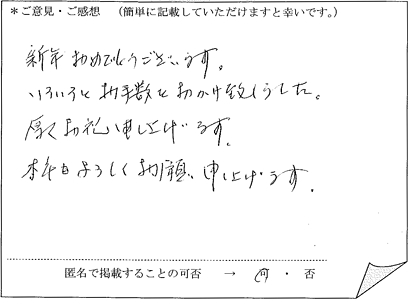 ＊ご意見・ご感想　（簡単に記載していただけますと幸いです。）
新年おめでとうございます。
いろいろとお手数をおかけ致しました。
厚くお礼申し上げます。
本年もよろしくお願い申し上げます.
匿名で掲載することの可否　→　可・否